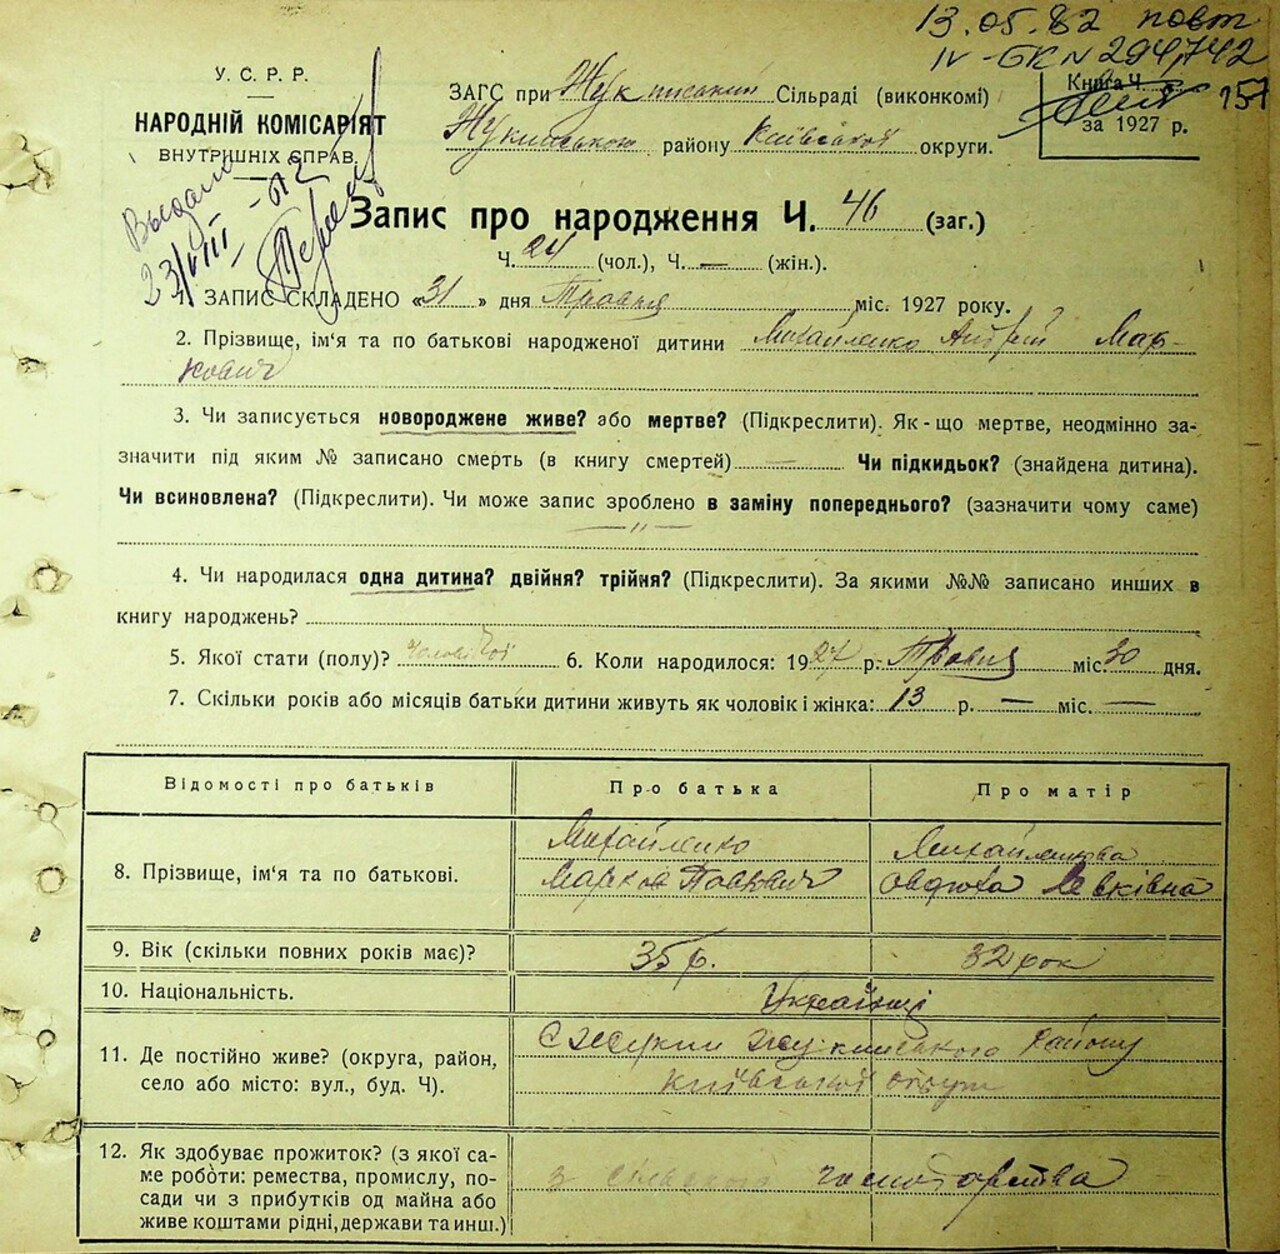 13.05.82 повт
IV-БК № 294742
157
У. С. Р. Р.
НАРОДНІЙ КОМІСАРІЯТ
ВНУТРІШНІХ СПРАВ.
ЗАГС при Жукинський Сільраді (виконкомі)
Жукинського району Київської округи.
Книга Ч.
за 1927 р.
Выдано
23/VIII-612
Запис про народження Ч. 46 (заг.)
Ч. 24 (чол.), Ч. — (жін.).
1. ЗАПИС СКЛАДЕНО «31» дня Травня міс. 1927 року.
2. Прізвище, ім'я та по батькові народженої дитини Михайленко Андрій Мар-
кович
3. Чи записується новороджене живе? або мертве? (Підкреслити). Як-що мертве, неодмінно за-
значити під яким № записано смерть (в книгу смертей) — Чи підкидьок? (знайдена дитина).
Чи всиновлена? (Підкреслити). Чи може запис зроблено в заміну попереднього? (зазначити чому саме)
— " —
4. Чи народилася одна дитина? двійня? трійня? (Підкреслити). За якими №№ записано инших в
книгу народжень?
5. Якої стати (полу)? чоловічої 6. Коли народилося: 1927 р. Травня міс. 30 дня.
7. Скільки років або місяців батьки дитини живуть як чоловік і жінка: 13 р. — міс. —
Відомості про батьків Про батька Про матір
8. Прізвище, ім'я та по батькові. Михайленко Марко Павлович Михайленкова Овдюха Левківна
9. Вік (скільки повних років має)? 35 р. 32 рок
10. Національність. Українці
11. Де постійно живе? (округа, район,
село або місто: вул., буд. Ч).
с Жукин Жукинського району
Київської округи
12. Як здобуває прожиток? (з якої са-
ме роботи: ремества, промислу, по-
сади чи з прибутків од майна або
живе коштами рідні, держави та инш.)
з сільского господарства